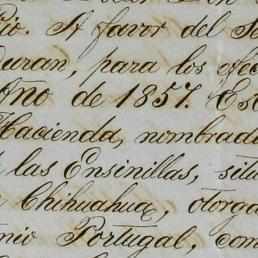 cio. A favor del Se
Duran, para los efec
Año de 1857. Est
Hacienda, nombrada
las Ensinillas, situ
Chihuahua, otorga
nio Portugal, com